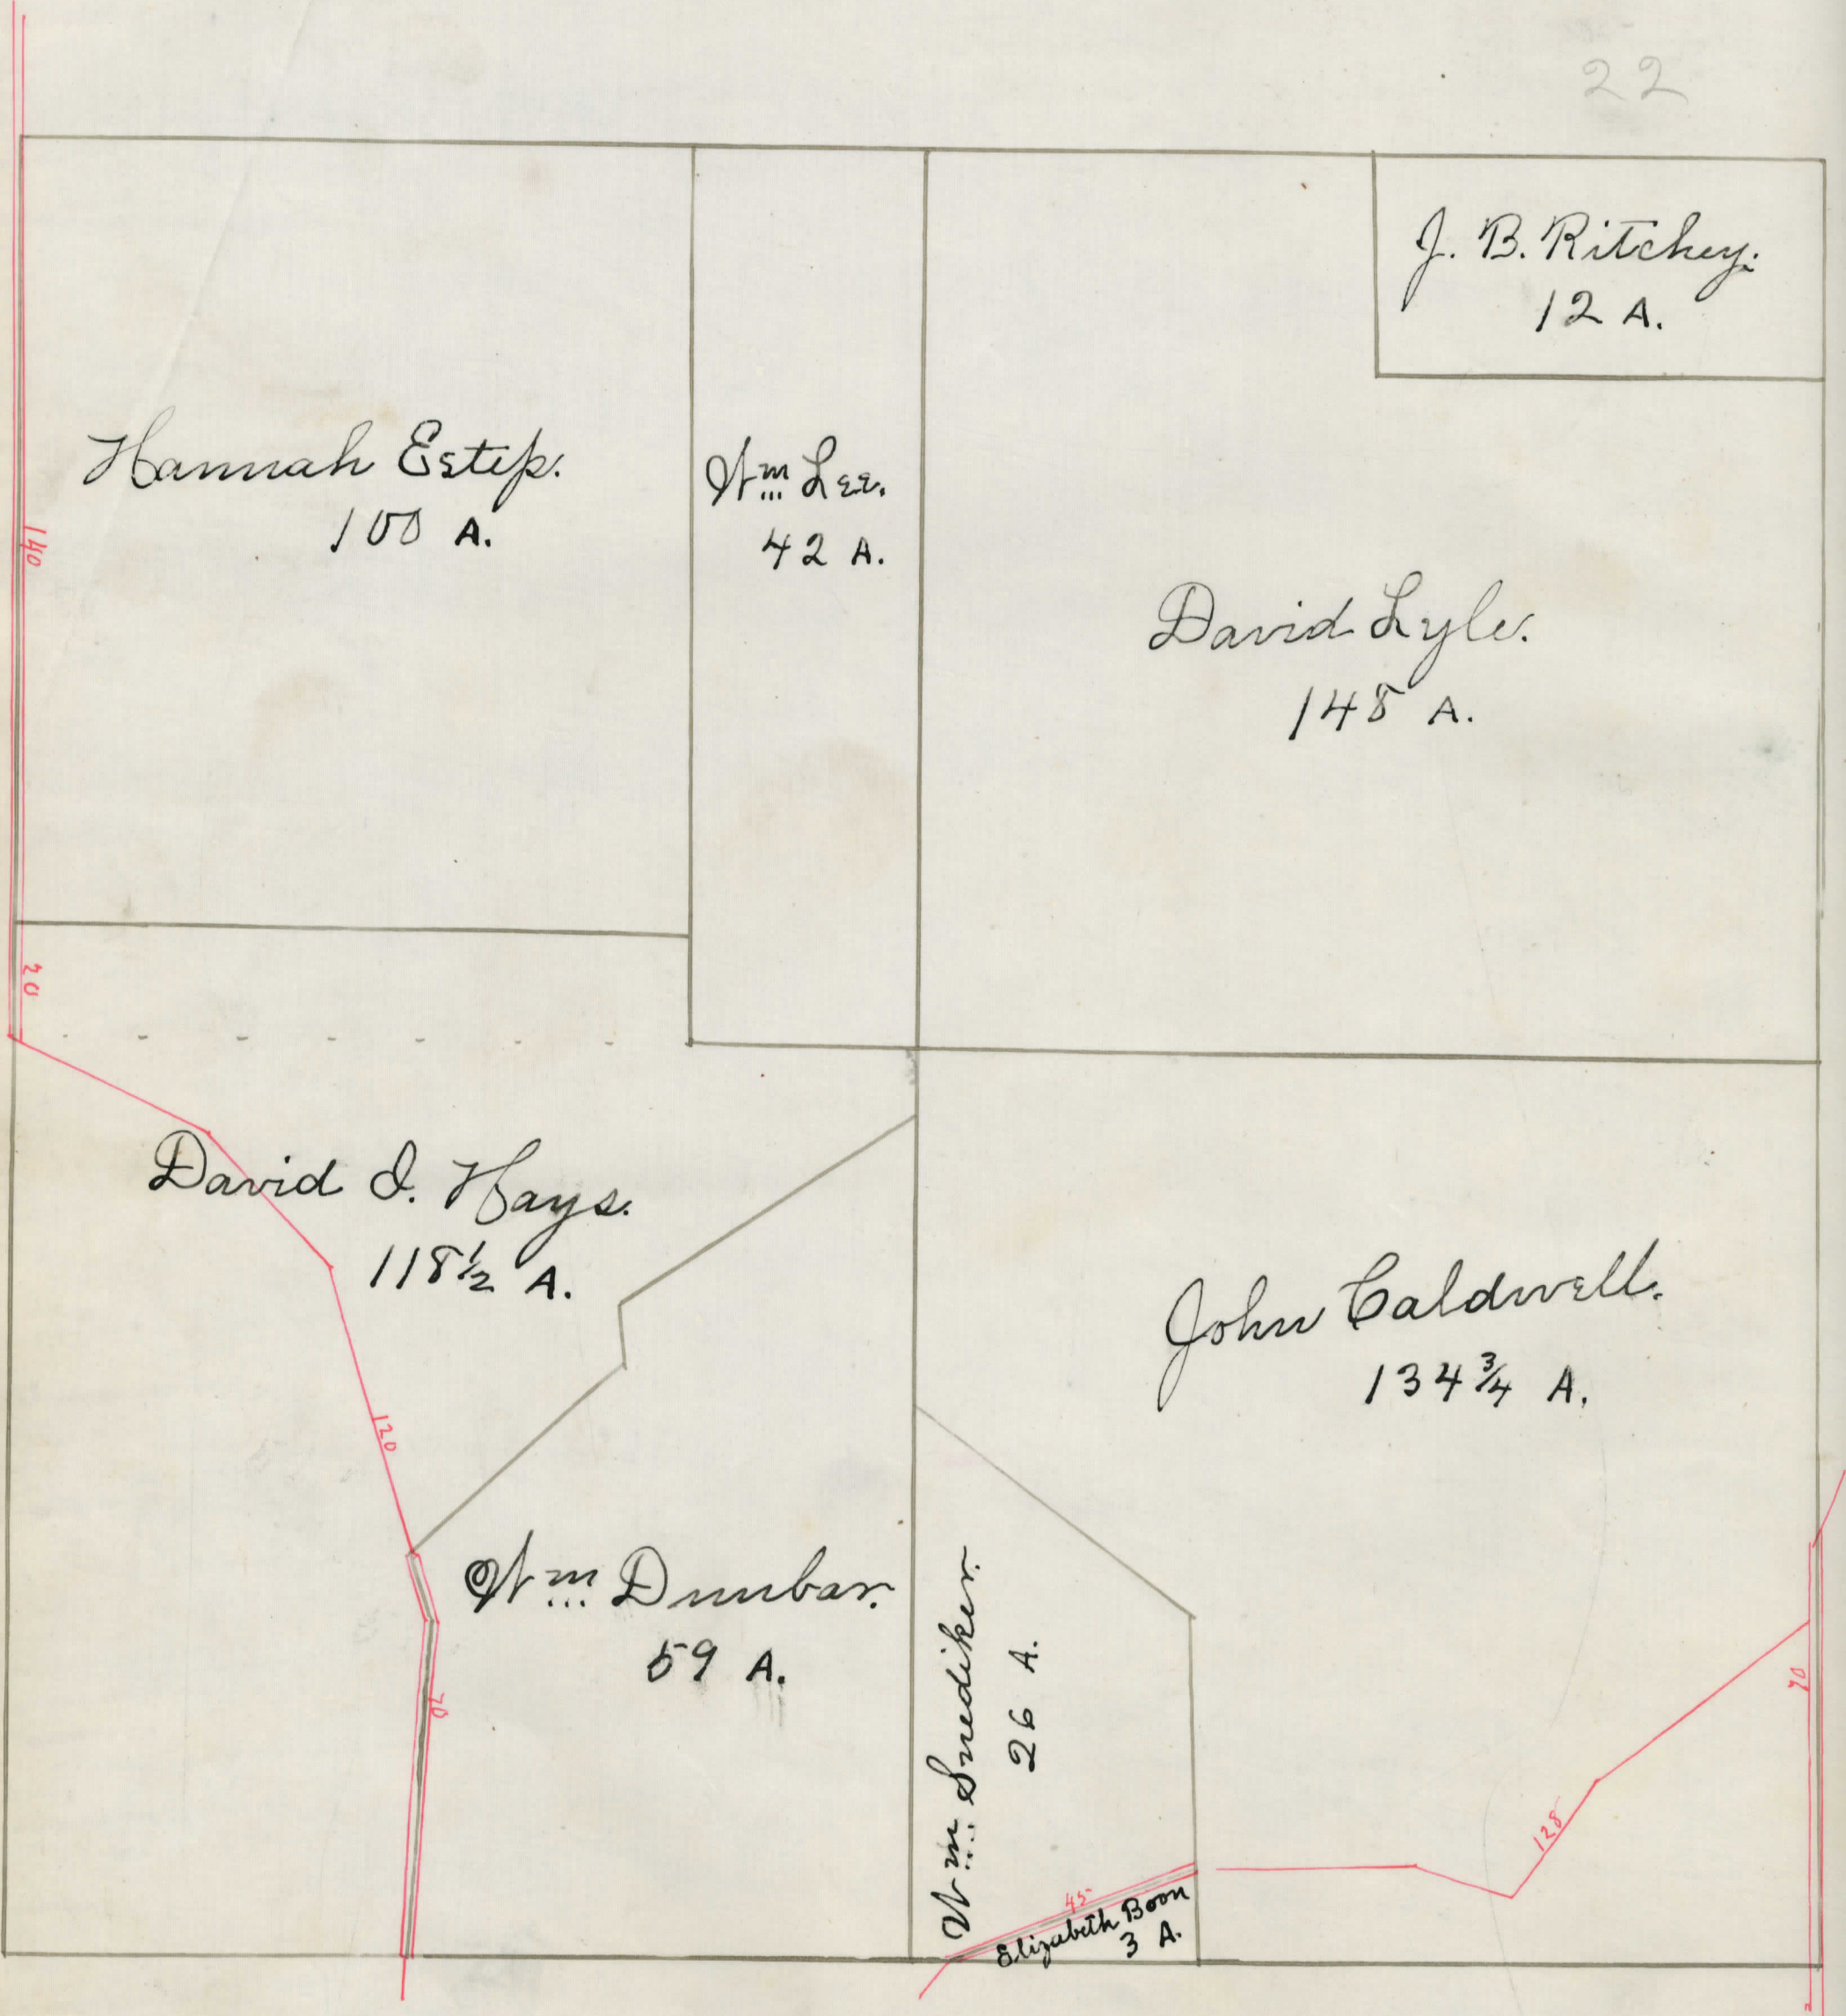 22
J. B. Ritchey.
12 A.
Hannah Estep.
100 A.
Wm Lee.
42 A.
140
David Lyle.
148 A.
20
David I. Hays.
118 1/2 A.
John Caldwell.
134 3/4 A.
120
Wm Dunbar.
59 A.
Wm Snediker.
26 A.
70
70
128
45
Elizabeth Boon
3 A.